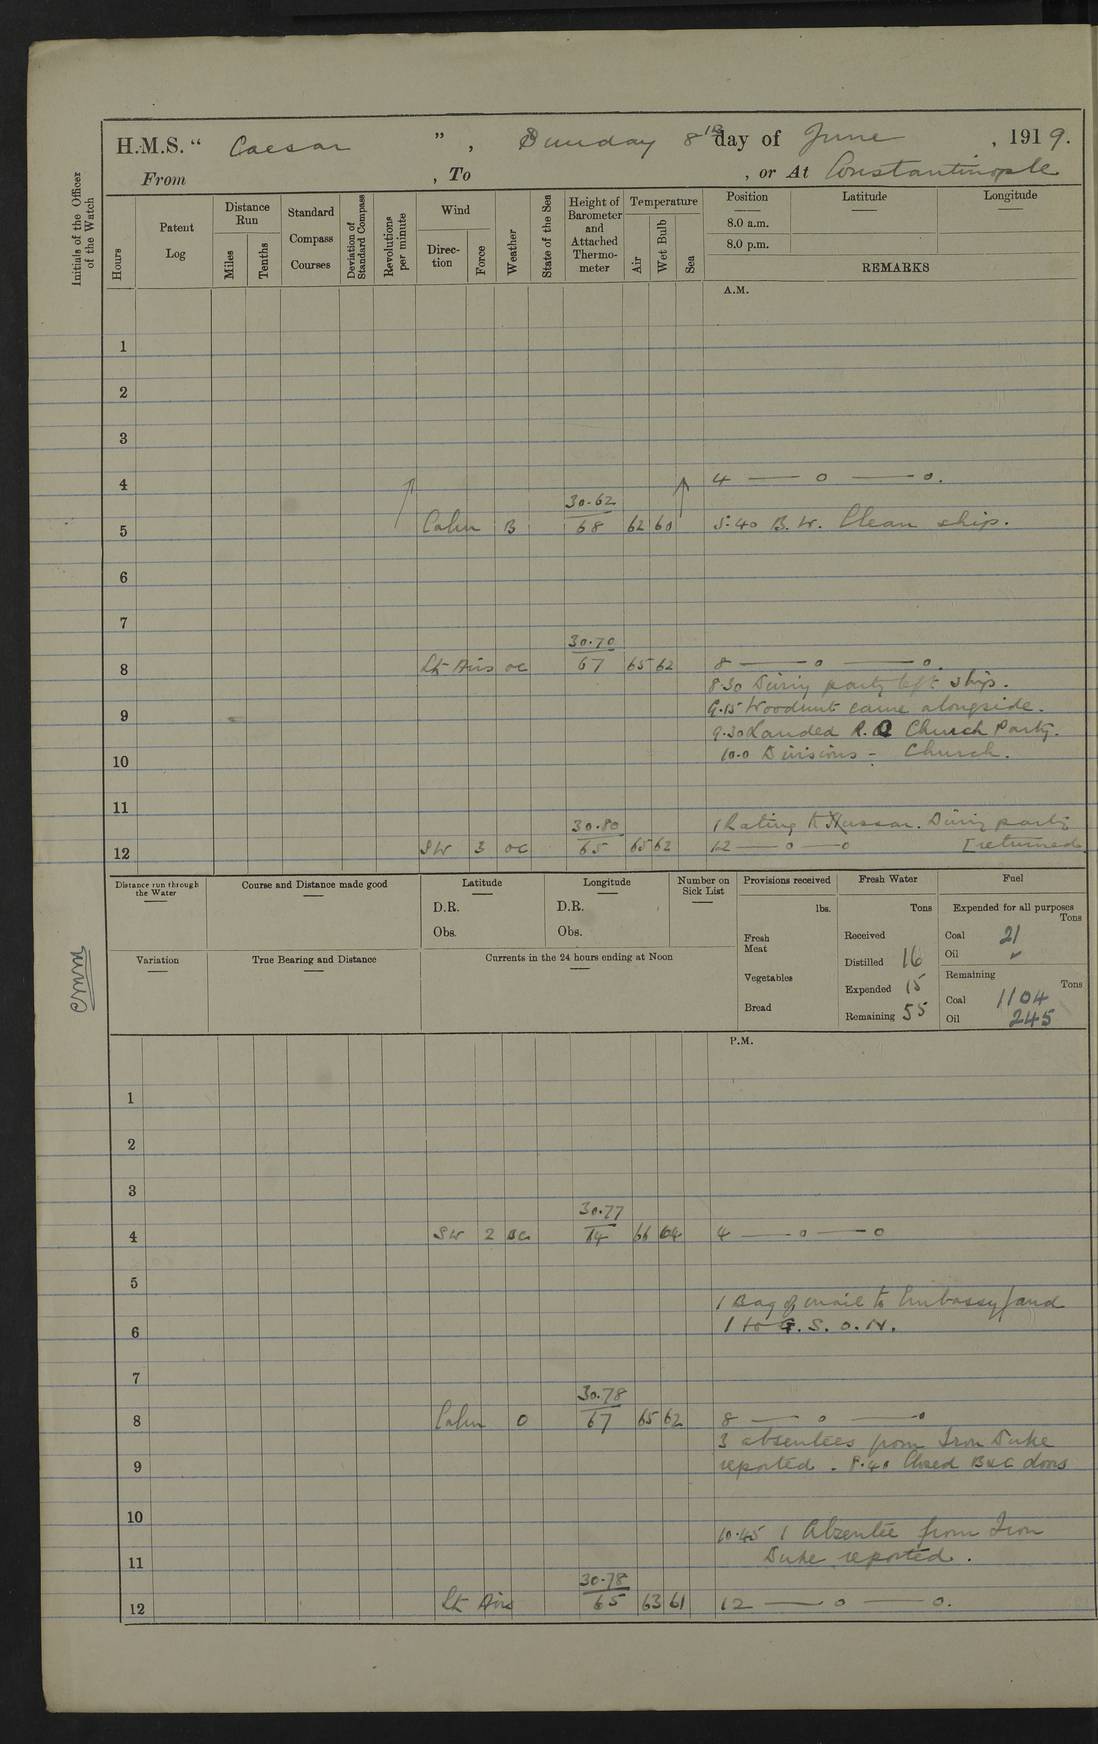 H.M.S. " Caesar ", Sunday 8th day of June, 1919.
From , To , or At Constantinople
Initials of the Officer of the Watch
Hours
Patent Log
Distance Run
Miles
Tenths
Standard Compass Courses
Deviation of Standard Compass
Revolutions per minute
Wind
Direction
Force
Weather
State of the Sea
Height of Barometer and Attached Thermometer
Temperature
Air
Wet Bulb
Sea
Position
Latitude
Longitude
8.0 a.m.
8.0 p.m.
REMARKS
A.M.
1
2
3
4 4 — o — o.
30.62
5 Calm B 68 62 60 5.40 B.W. Clean ship.
6
7
30.70
8 Lt Airs oc 67 65 62 8 — o — o.
8.30 Diving party left ship.
9 9.15 Woodnut came alongside.
9.30 Landed R.C. Church Party.
10 10.0 Divisions - Church.
11
30.80 1 Rating to Hussar. Diving party
12 SW 3 oc 65 65 62 12 — o — o [returned
Distance run through the Water
Course and Distance made good
Latitude
D.R.
Obs.
Longitude
D.R.
Obs.
Number on Sick List
Provisions received
lbs.
Fresh Meat
Vegetables
Bread
Fresh Water
Tons
Received
Distilled 16
Expended 15
Remaining 55
Fuel
Expended for all purposes
Tons
Coal 21
Oil
Remaining
Tons
Coal 1104
Oil 245
Variation
True Bearing and Distance
Currents in the 24 hours ending at Noon
P.M.
1
2
3
30.77
4 SW 2 BC 64 66 64 4 — o — o
5
1 Bag of mail to Embassy/and
6 1 to G.S.O.N.
7
30.78
8 Calm O 67 65 62 8 — o — o
3 absentees from Iron Duke
9 reported. 8.40 Closed B & C doors
10
10.45 1 Absentee from Iron
11 Duke reported.
30.78
12 Lt Airs 65 63 61 12 — o — o.